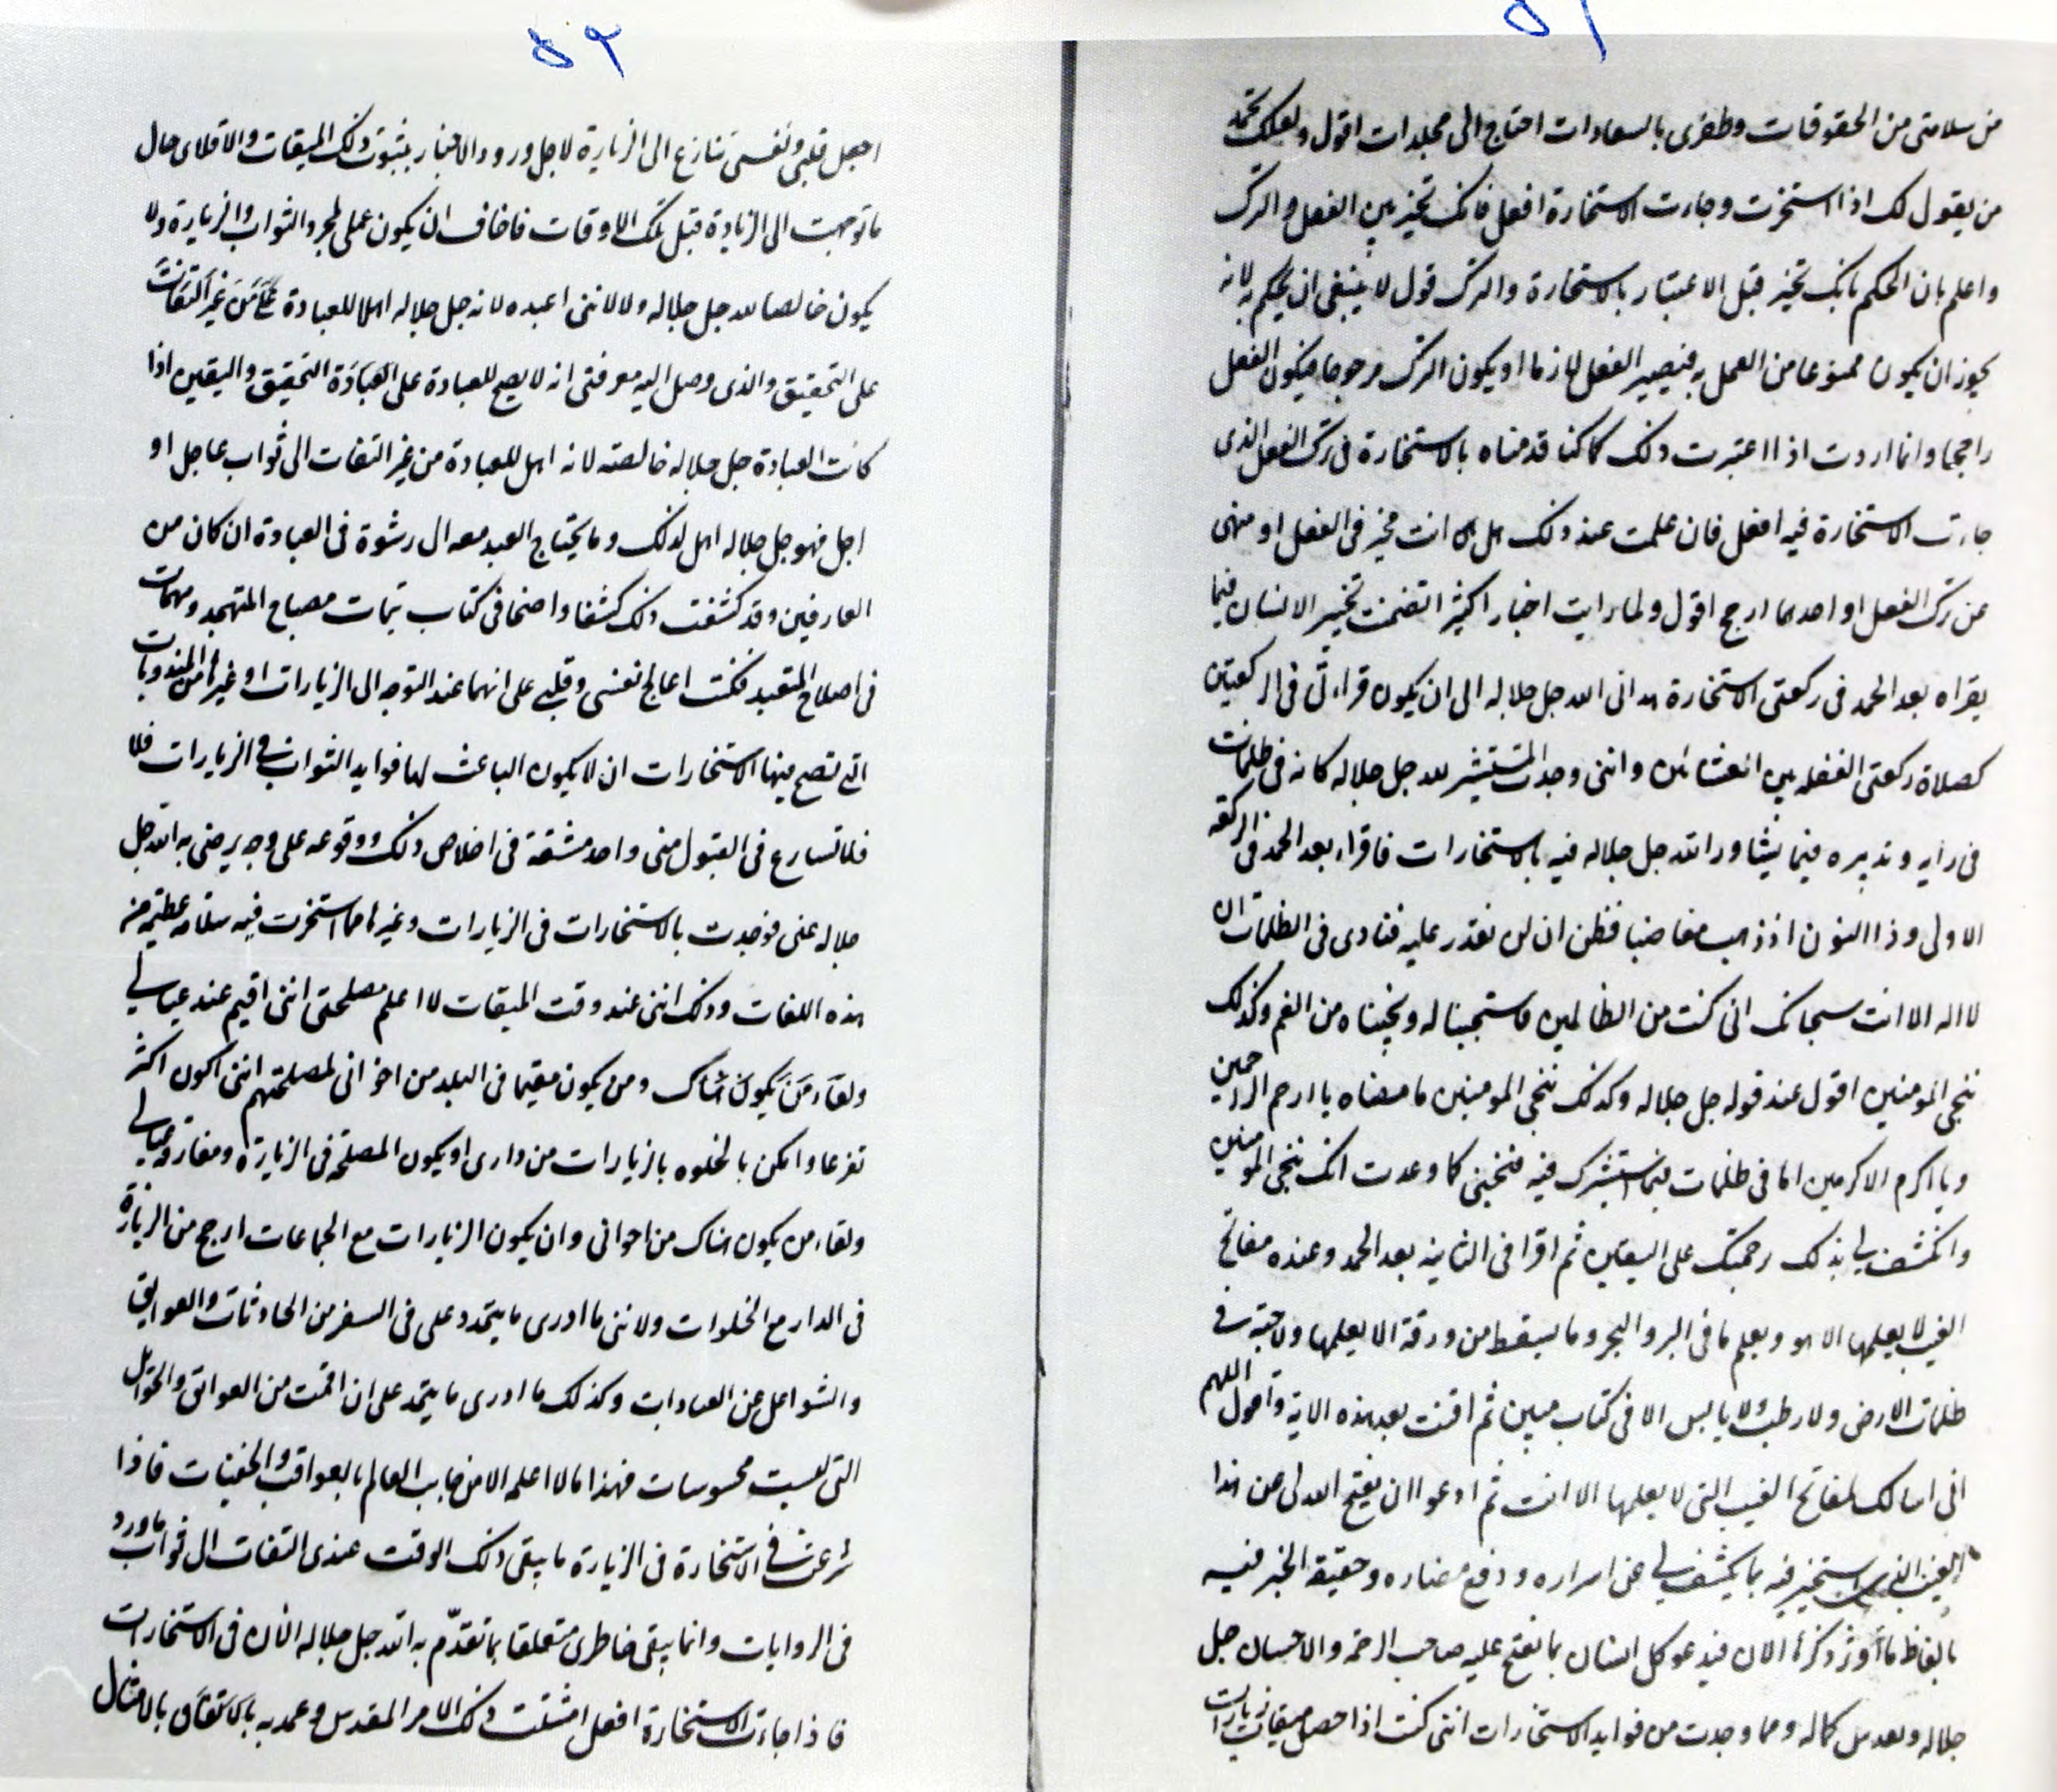 ۵۱
من سلامتى من الحقوقات وظفرى بالسعادات احتاج الى مجلدات اقول ولعلك تجد
من يقول لك اذا استخرت وجاءت الاستخارة افعل فانك تخير بين الفعل والترك
واعلم بان الحكم بانك تخير قبل الاعتبار بالاستخارة والترك قول لا ينبغى ان يحكم به لانه
يجوز ان يكون ممنوعا من العمل به فيصير الفعل لازما او يكون الترك مرجوحا فيكون الفعل
راجحا وانما اردت اذا اعتبرت ذلك كما كنا قدمناه بالاستخارة فى ترك الفعل الذى
جاءت الاستخارة فيه افعل فان علمت عند ذلك هل انت مخير فى الفعل او منهى
عن ترك الفعل او احدهما ارجح اقول ولما رايت اخبارا كثيرا تضمنت تخيير الانسان فيما
يقراه بعد الحمد فى ركعتى الاستخارة هدانى الله جل جلاله الى ان يكون قراءتى فى الركعتين
كصلاة ركعتى الغفله بين العشائين واننى وجدت المستشير لله جل جلاله كانه فى ظلمات
فى رايه وتدبيره فيما يشاور الله جل جلاله فيه بالاستخارات فاقراء بعد الحمد فى الركعة
الاولى وذا النون اذ ذهب مغاضبا فظن ان لن نقدر عليه فنادى فى الظلمات ان
لا اله الا انت سبحانك انى كنت من الظالمين فاستجبنا له ونجيناه من الغم وكذلك
ننجى المومنين اقول عند قوله جل جلاله وكذلك ننجى المومنين ما معناه يا ارحم الراحمين
ويا اكرم الاكرمين انا فى ظلمات فيما استشيرك فيه فنجينى كما وعدت انك تنجى المومنين
واكشف لى بذلك رحمتك على اليقين ثم اقرا فى الثانيه بعد الحمد وعنده مفاتح
الغيب لا يعلمها الا هو ويعلم ما فى البر والبحر وما يسقط من ورقة الا يعلمها ولا حبة فى
ظلمات الارض ولا رطب ولا يابس الا فى كتاب مبين ثم اقنت بعد هذه الاية واقول اللهم
انى اسالك بمفاتح الغيب التى لا يعلمها الا انت ثم ادعو ان يفتح الله لى من هذا
الغيب الذى استخير فيه بما يكشف لى عن اسراره ودفع مضاره وحقيقة الخير فيه
بالفاظ ما أوثر ذكرها الان فيدعو كل انسان بما يفتح عليه صاحب الرحمه والاحسان جل
جلاله وبعد من كماله ومما وجدت من فوايد الاستخارات اننى كنت اذا حصل ميقات زيارات
۵۲
اجعل قلبى ونفسى تنازع الى الزيارة لاجل ورود الاخبار بثبوت ذلك الميقات والا فلاى حال
ما توجهت الى الزيادة قبل تلك الاوقات فاخاف ان يكون عملى لمجرد الثواب والزيارة ولا
يكون خالصا لله جل جلاله ولا لاننى اعبده لانه جل جلاله اهلا للعبادة من غير التفات
على التحقيق والذى وصل اليه معرفتى انه لا يصح للعبادة على العبادة التحقيق واليقين اذا
كانت العبادة جل جلاله خالصته لانه اهل للعبادة من غير التفات الى ثواب عاجل او
اجل فهو جل جلاله اهل لذلك وما يحتاج العبد معه الى رشوة فى العبادة ان كان من
العارفين وقد كشفت ذلك كشفا واضحا فى كتاب تتمات مصباح المتهجد ومهمات
فى اصلاح المتعبد فكنت اعالج نفسى وقلبى على انهما عند التوجه الى الزيارات او غيرها من المندوبات
التى تصح فيها الاستخارات ان لا يكون الباعث لها فوايد الثواب فى الزيارات فلا
فلا تسارع فى القبول منى واجد مشقة فى اخلاص ذلك ووقوعه على وجه يرضى به الله جل
جلاله عنى فوجدت بالاستخارات فى الزيارات وغيرها مما استخرت فيه سلامه عظيمه من
هذه اللغات وذلك اننى عند وقت الميقات لا اعلم مصلحتى اننى اقيم عند عيالى
ولقاء من يكون هناك ومن يكون مقيما فى البلد من اخوانى لمصلحتهم اننى اكون اكثر
تفرغا وامكن بالخلوه بالزيارات من دارى او يكون المصلحة فى الزيارة ومفارقة عيالى
ولقاء من يكون هناك من اخوانى وان يكون الزيارات مع الجماعات ارجح من الزيارة
فى الدار مع الخلوات ولاننى ما ادرى ما يتجدد على فى السفر من الحادثات والعوايق
والشواغل عن العبادات وكذلك ما ادرى ما يتجد على ان اقمت من العوائق والحوائل
التى ليست محسوسات فهذا ما لا اعلمه الا من جانب العالم بالعواقب والخفيات فاذا
شرعت فى الاستخارة فى الزيارة ما يبقى ذلك الوقت عندى التفات الى ثواب ما ورد
فى الروايات وانما يبقى خاطرى متعلقا بما تقدّم به الله جل جلاله الان فى الاستخارات
فاذا جاءت الاستخارة افعل امتثلت ذلك الامر المقدس وعمد به بالاتفاق بالامتثال